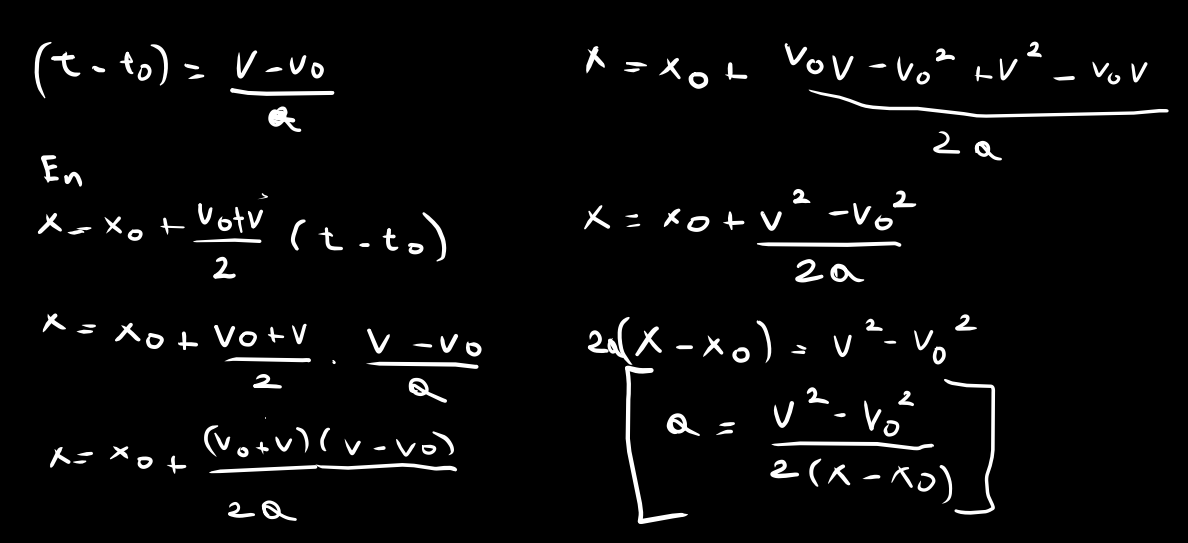 (t - t₀) = (v - v₀)/a
En
x = x₀ + (v₀+v)/2 (t - t₀)
x = x₀ + (v₀+v)/2 · (v - v₀)/a
x = x₀ + ((v₀+v)(v - v₀))/2a
x = x₀ + (v₀v - v₀² + v² - v₀v)/2a
x = x₀ + (v² - v₀²)/2a
2a(x - x₀) = v² - v₀²
[a = (v² - v₀²)/(2(x - x₀))]